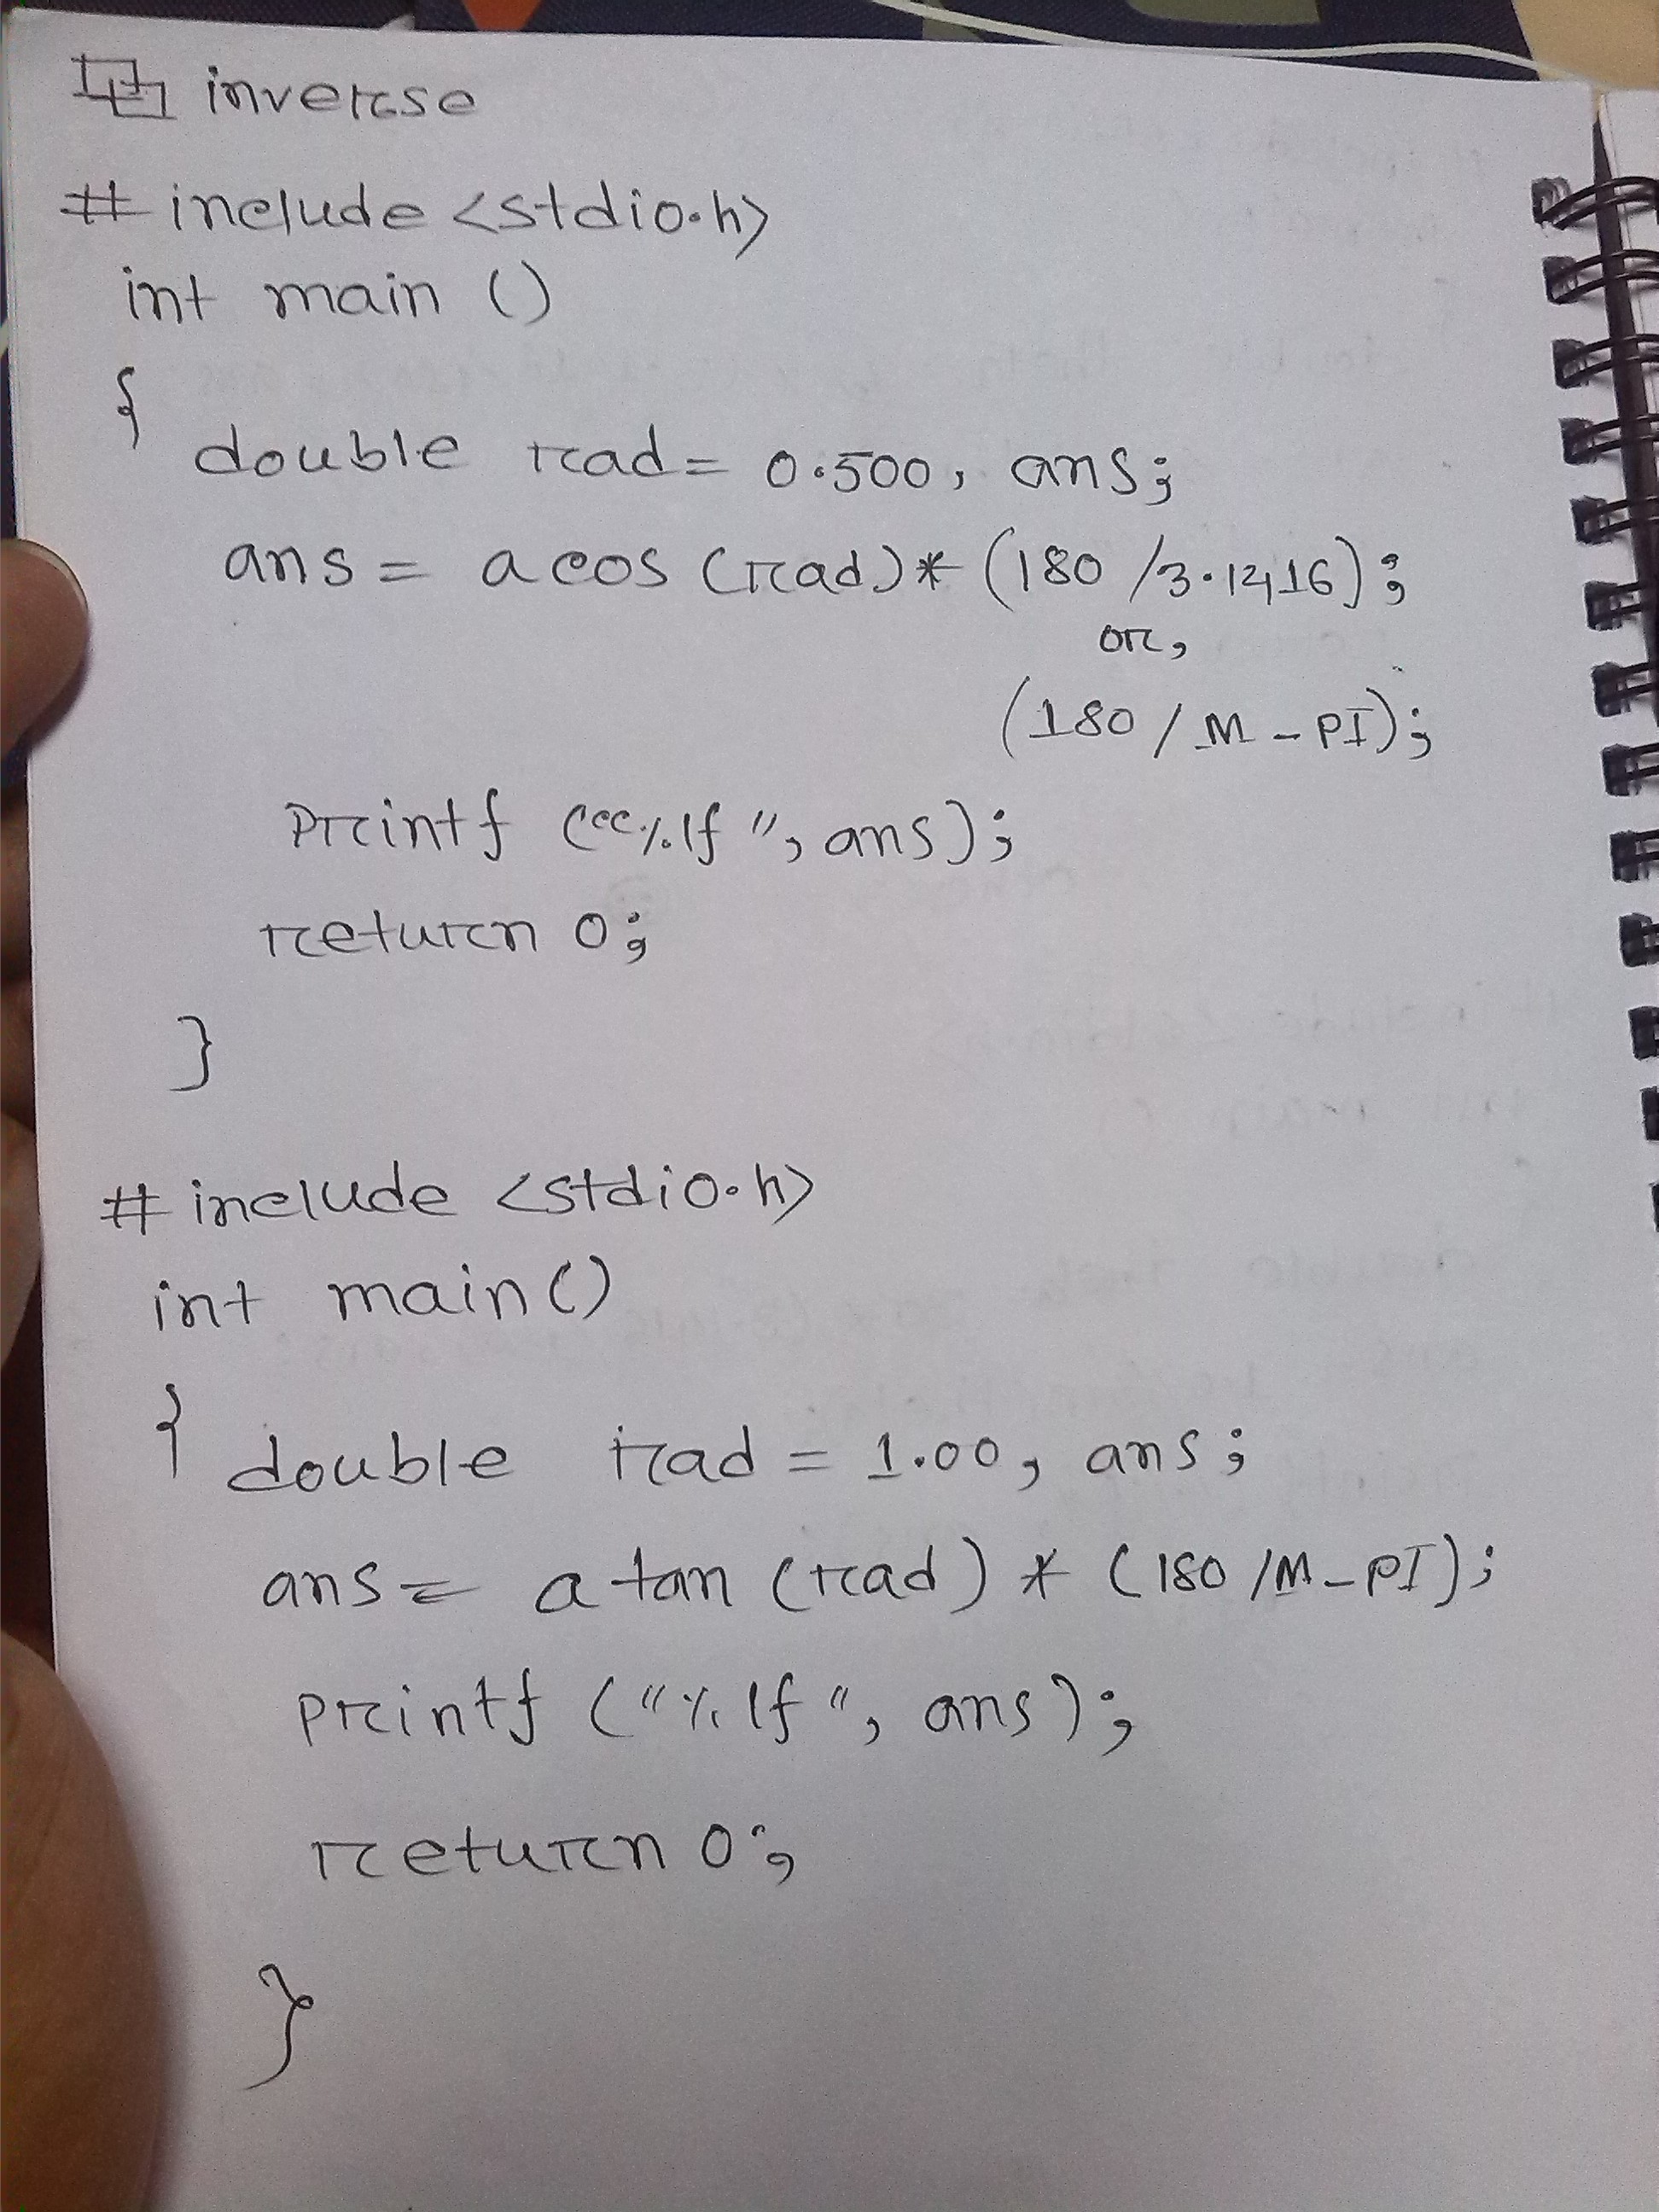 inverse
# include <stdio.h>
int main ()
{
double rad = 0.500, ans;
ans = acos (rad) * (180 / 3.1416);
or,
(180 / M_PI);
Printf ("%lf", ans);
return 0;
}
# include <stdio.h>
int main ()
{ double rad = 1.00, ans;
ans = atan (rad) * (180 / M_PI);
printf ("%lf", ans);
return 0;
}